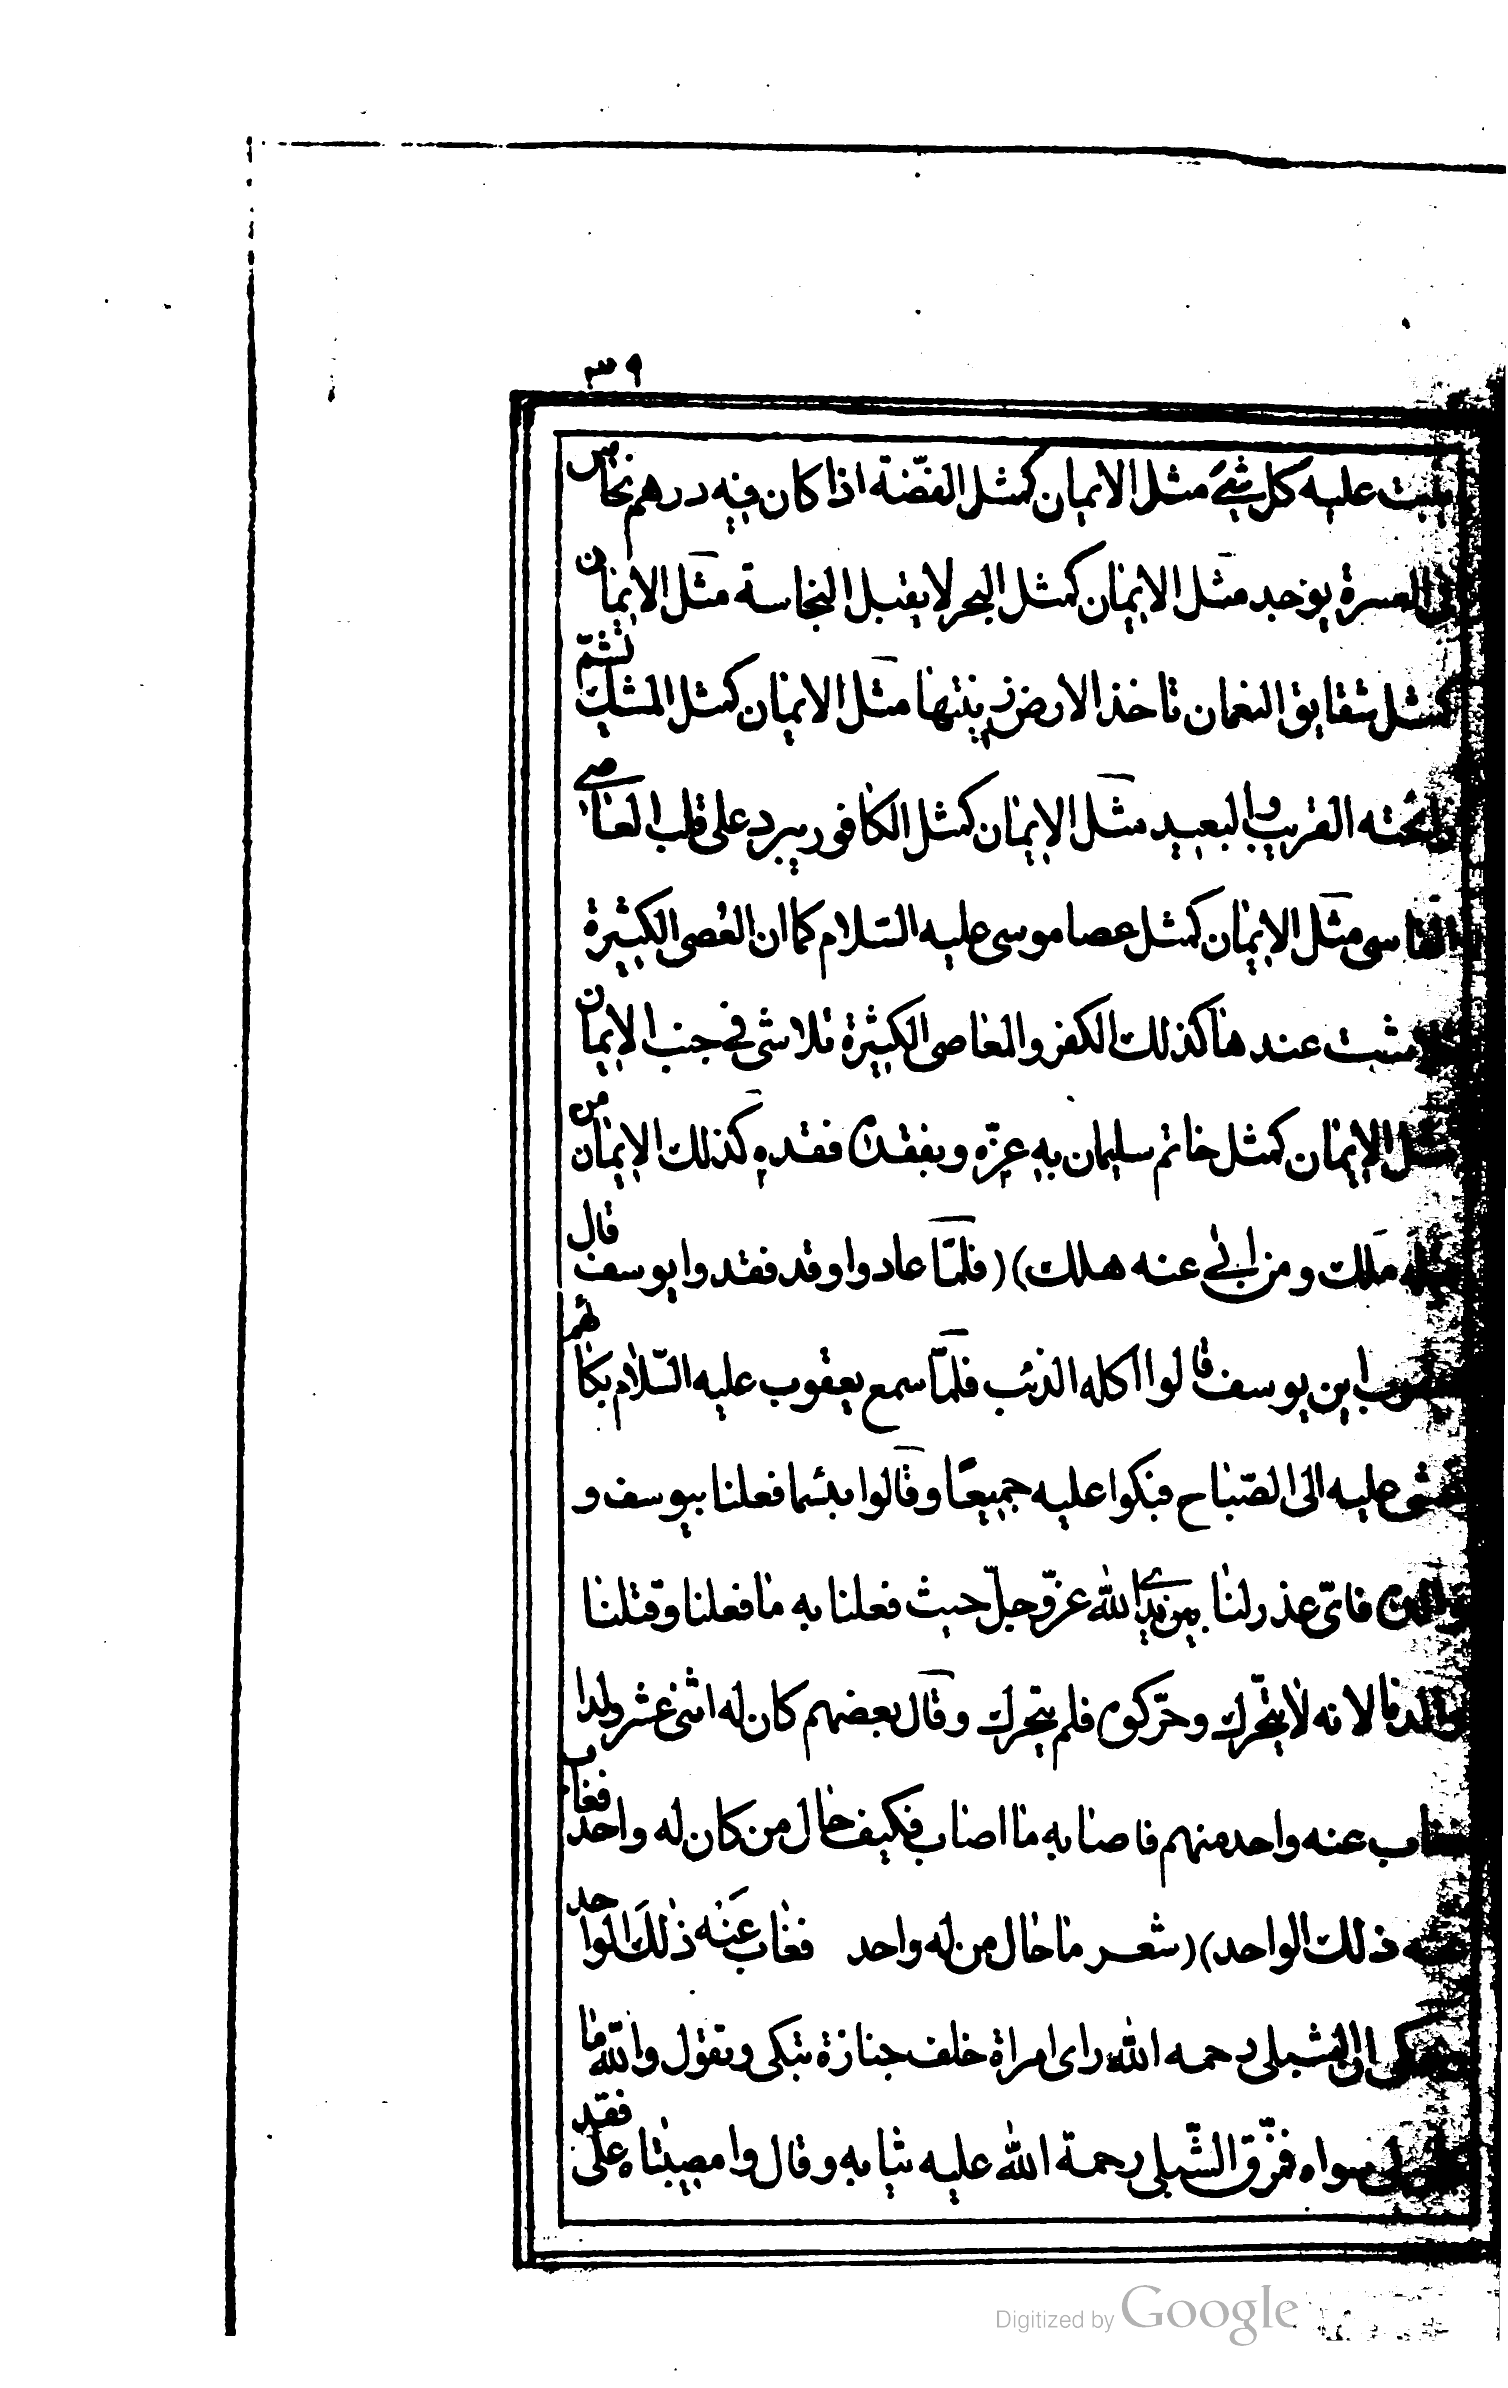 ٣٩
يثبت عليه كل شئ مثل الايمان كمثل الفضّة اذا كان فيه درهم نحاس
الصرة يوخد مثل الايمان كمثل البحر لا يقبل النجاسة مثل الايمان
كمثل شقايق النعمان تاخذ الارض زينتها مثل الايمان كمثل المسك تشمّ
رايحته القريب والبعيد مثل الايمان كمثل الكافور يبرد على قلب العاصى
القاسى مثل الايمان كمثل عصا موسى عليه السّلام كما ان العُصى الكثيرة
مثبت عندها كذلك الكفر والمعاصى الكثيرة تلاشى فى جنب الايمان
مثل الايمان كمثل خاتم سليمان به عِزّه وبفقدان فقده كذلك الايمان من
ملك ومن ابى عنه هلك) (فلمّا عادوا وقد فقدوا يوسف قال
يعقوب اين يوسف قالوا اكله الذئب فلمّا سمع يعقوب عليه السّلام بكاهُم
غشى عليه الى الصّباح فبكوا عليه جميعًا وقالوا بئسما فعلنا بيوسف و
والدنا فاىّ عذر لنا بين يدى الله عزّ وجلّ حيث فعلنا به ما فعلنا وقتلنا
والدنا لانه لا يتحّرك وحرّكوه فلم يتحرك وقال بعضهم كان له اثنى عشر ولدا
فغاب عنه واحد منهم فاصابه ما اصاب فكيف حال من كان له واحد فغاب
عنه ذلك الواحد) (شعر ما حال من له واحد فغاب عَنْه ذٰلِكَ الواحد
حكى ان الشبلى رحمه الله راى امراة خلف جنازة تبكى وتقول والله ما
لى سواه فمزّق الشّبلى رحمة الله عليه ثيابه وقال وا مصيبتاه على فقد
Digitized by Google